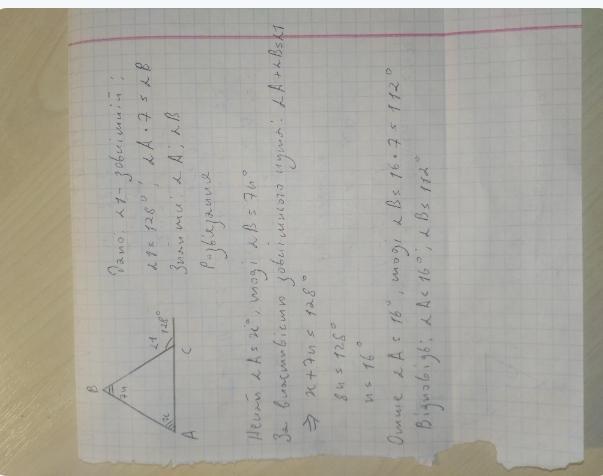 Дано: ∠1 - зовнішній;
∠1 = 128°; ∠A · 7 = ∠B
Знайти: ∠A; ∠B
Розв'язання
B
7x
∠1
128°
x
A
C
Нехай ∠A = x°, тоді ∠B = 7x°
За властивістю зовнішнього кута: ∠A + ∠B = ∠1
⇒ x + 7x = 128°
8x = 128°
x = 16°
Отже ∠A = 16°, тоді ∠B = 16 · 7 = 112°
Відповідь: ∠A = 16°; ∠B = 112°